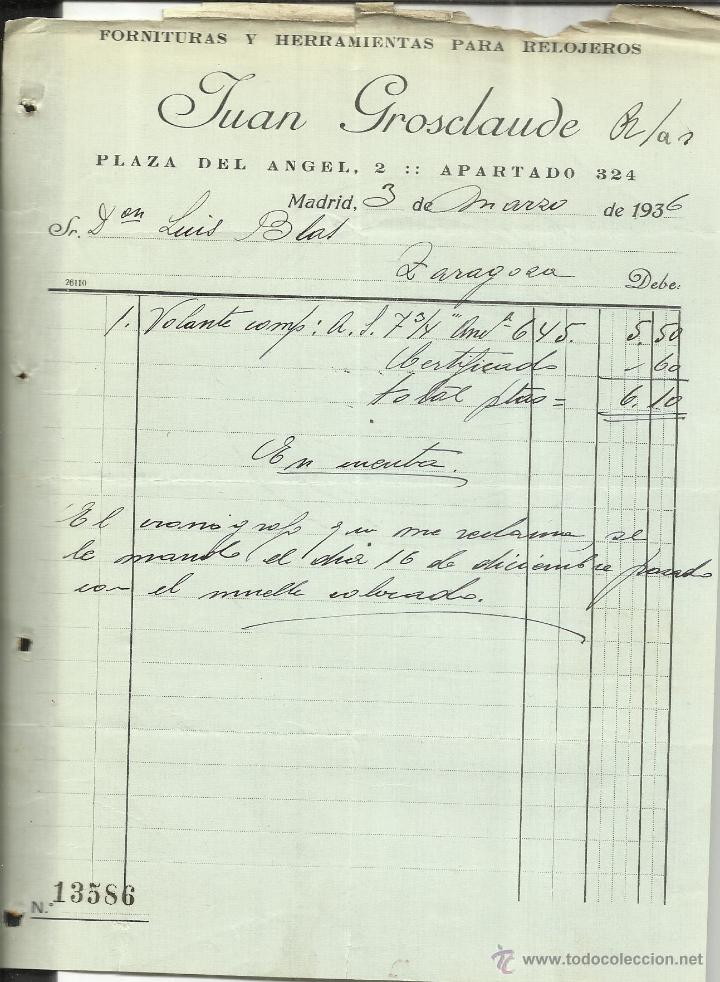 FORNITURAS Y HERRAMIENTAS PARA RELOJEROS
Juan Grosclaude
PLAZA DEL ANGEL, 2 :: APARTADO 324
Madrid, 3 de marzo de 1936
Sr. Don Luis Blat
Zaragoza Debe:
26110
1. Volante comp: A. S. 7 3/4 ''' 645. 5.50
Certificado - 60
total ptas = 6.10
En cuenta.
El cronógrafo que me reclama, se
le mandó el dia 16 de diciembre pasado
con el muelle colocado.
N.º 13586
www.todocoleccion.net